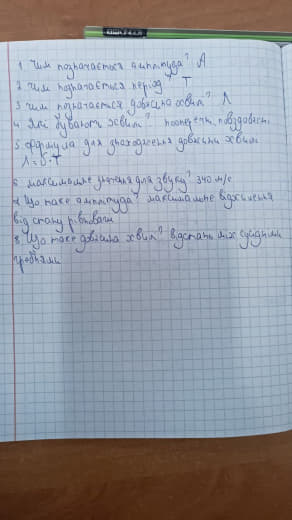 1 Чим позначається амплітуда? A
2. Чим позначається період T
3 Чим позначається довжина хвилі? Λ
4 Які бувають хвилі? поперечні, повздовжні
5. Формула для знаходження довжини хвилі
Λ = υ · T
6 максимальне значення для звуку? 340 м/с
7 Що таке амплітуда? максимальне відхилення
від стану рівноваги
8. Що таке довжина хвилі? відстань між сусідніми
гребнями